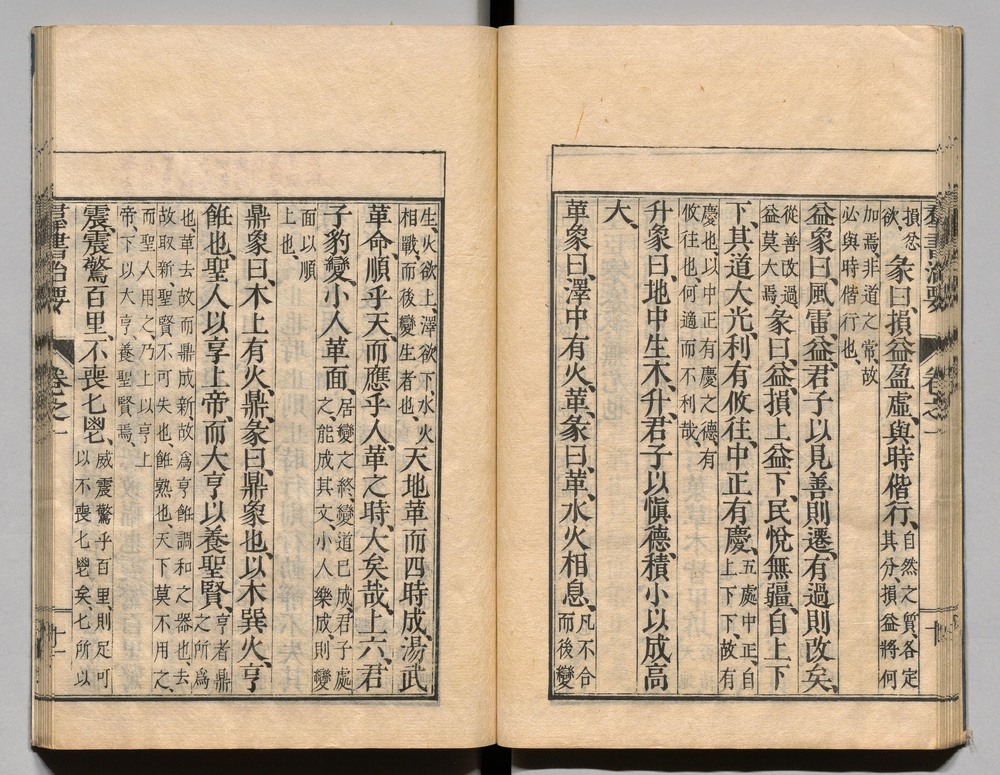 羣書治要 卷之一 十
損忿
欲、
彖曰、損益盈虛、與時偕行、
自然之質、各定
其分、損益將何
加焉、非道之常、故
必與時偕行也、
益象曰、風雷、益、君子以見善則遷、有過則改矣、
從善改過、
益莫大焉、
彖曰、益、損上益下、民悅無疆、自上下
下、其道大光、利有攸往、中正有慶、
五處中正、自
上下下、故有
慶也、以中正有慶之德、有
攸往也、何適而不利哉、
升象曰、地中生木、升、君子以愼德積小以成高
大、
革象曰、澤中有火、革、彖曰、革、水火相息、
凡不合
而後變
生、火欲上、澤欲下、水火
相戰、而後變生者也、
天地革而四時成、湯武
革命、順乎天、而應乎人、革之時、大矣哉、上六、君
子豹變、小人革面、
居變之終、變道已成、君子處
之、能成其文、小人樂成、則變
面以順
上也、
鼎象曰、木上有火、鼎、彖曰、鼎象也、以木巽火、亨
飪也、聖人以享上帝、而大亨以養聖賢、
亨者鼎
之所爲
也、革去故而鼎成新、故爲亨飪調和之器也、去
故取新、聖賢不可失也、飪熟也、天下莫不用之、
而聖人用之、乃上以亨上
帝、下以大亨養聖賢焉、
震、震驚百里、不喪匕鬯、
威震驚乎百里、則足可
以不喪匕鬯矣、匕所以
羣書治要 卷之一 十一